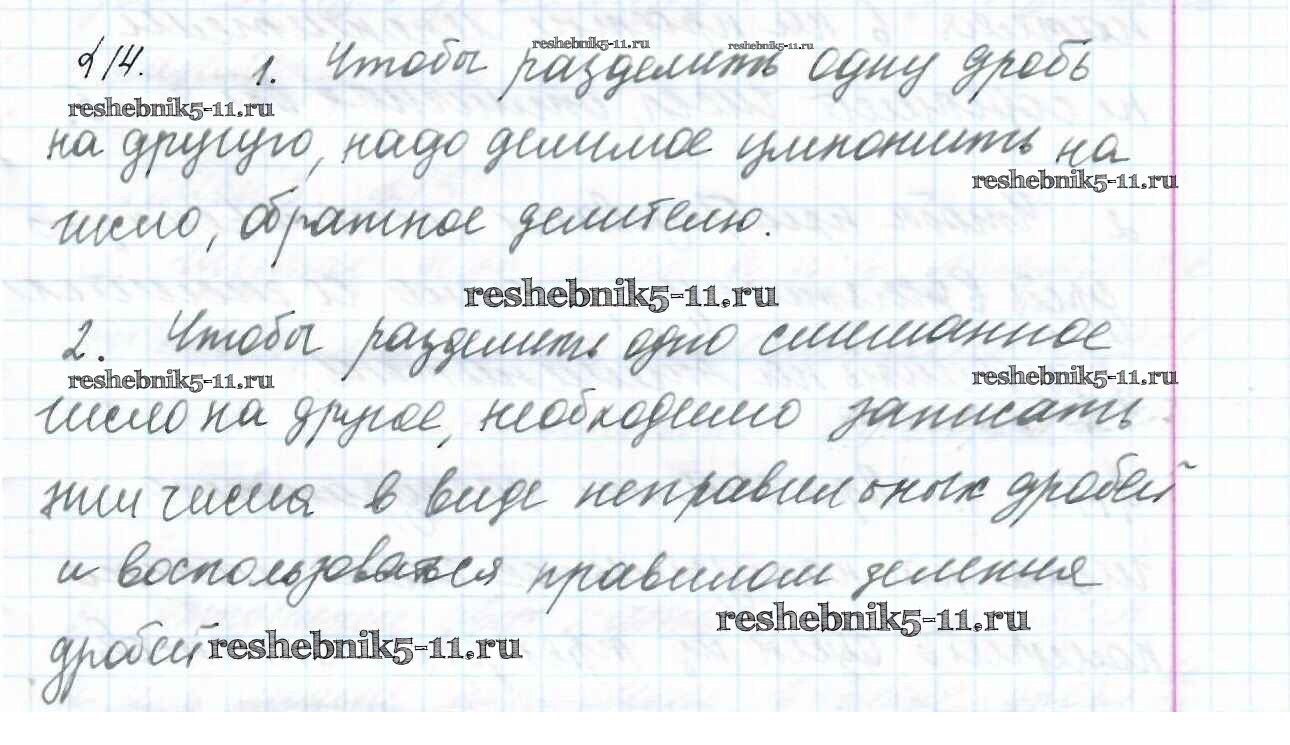 §14. 1. Чтобы разделить одну дробь
reshebnik5-11.ru reshebnik5-11.ru
reshebnik5-11.ru
на другую, надо делимое умножить на
reshebnik5-11.ru
число, обратное делителю.
reshebnik5-11.ru
2. Чтобы разделить одно смешанное
reshebnik5-11.ru reshebnik5-11.ru
число на другое, необходимо записать
эти числа в виде неправильных дробей
и воспользоваться правилом деления
reshebnik5-11.ru
дробей reshebnik5-11.ru